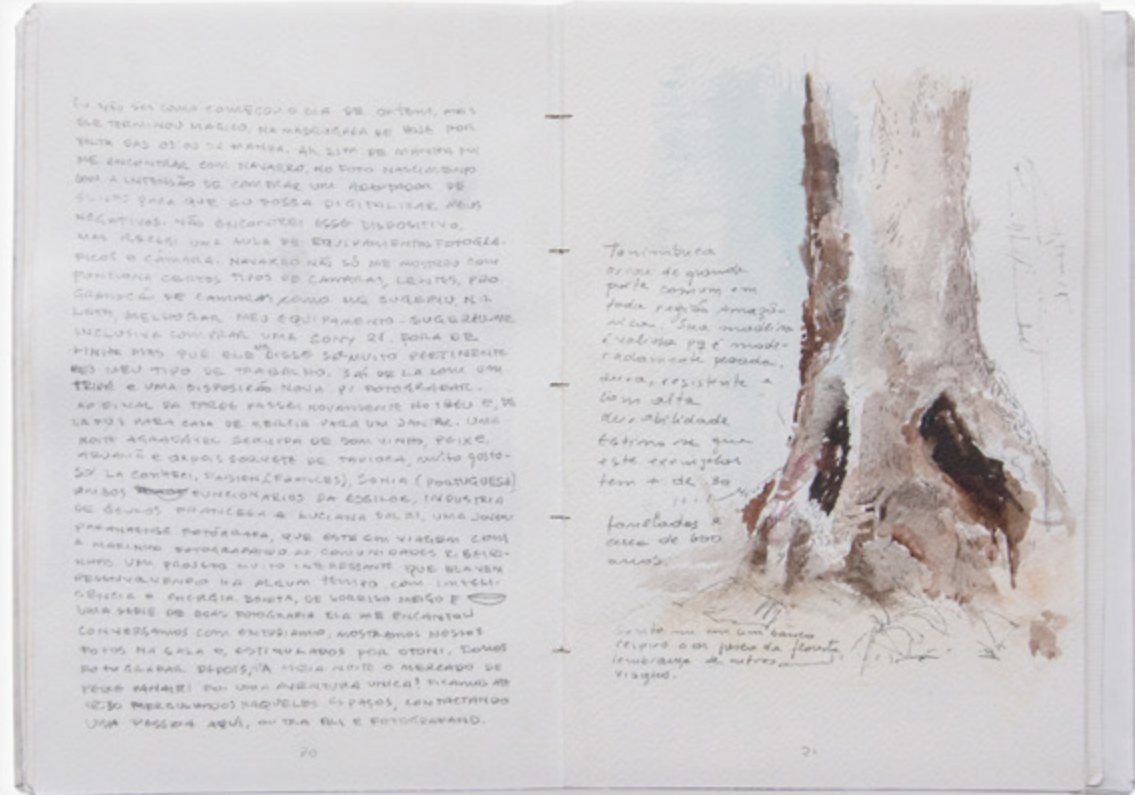 EU NÃO SEI COMO COMEÇOU O DIA DE ONTEM, MAS
ELE TERMINOU MÁGICO, NA MADRUGADA DE HOJE POR
VOLTA DAS DA MANHÃ. DE MANHÃ FUI
ME ENCONTRAR COM NAVARRO, NO FOTO NASCIMENTO
COM A INTENSÃO DE COMPRAR UM ADAPTADOR DE
SLIDES PARA QUE EU POSSA DIGITALIZAR MEUS
NEGATIVOS. NÃO ENCONTREI ESSE DISPOSITIVO,
MAS RECEBI UMA AULA DE EQUIPAMENTOS FOTOGRÁ-
FICOS E CÂMARA. NAVARRO NÃO SÓ ME MOSTROU COMO
FUNCIONA CERTOS TIPOS DE CAMARAS, LENTES, PRO
GRAMAÇÃO DE CAMARAS, COMO ME SUGERIU, NA
LATA, MELHORAR MEU EQUIPAMENTO. SUGERIU-ME
INCLUSIVE COMPRAR UMA SONY FORA DE
LINHA MAS QUE ELE DISSE SER MUITO PERTINENTE
MEU TIPO DE TRABALHO. SAÍ DE LÁ COM UM
TRIPÉ E UMA DISPOSIÇÃO NOVA P/ FOTOGRAFAR.
AO FINAL DA TARDE PASSEI NOVAMENTE NO E, DE
LÁ FUI PARA CASA DE PARA UM JANTAR. UMA
NOITE AGRADÁVEL SERVIDA DE BOM VINHO, PEIXE,
E DEPOIS SORVETE DE TAPIOCA, MUITO GOSTO-
SO! LÁ CONHECI, (FRANCÊS), SONIA (PORTUGUESA)
AMBOS FUNCIONÁRIOS DA ESSILOR, INDUSTRIA
DE ÓCULOS FRANCESA E LUCIANA UMA JOVEM
PARANAENSE FOTÓGRAFA, QUE ESTÁ EM VIAGEM COM
A MARINHA FOTOGRAFANDO AS COMUNIDADES RIBEIRI-
NHAS UM PROJETO MUITO INTERESSANTE QUE ELA VEM
DESENVOLVENDO HÁ ALGUM TEMPO COM INTELI-
GÊNCIA E ENERGIA. BONITA, DE SORRISO MEIGO E
UMA SÉRIE DE BOAS FOTOGRAFIA ELA ME ENCANTOU
CONVERSAMOS COM ENTUSIASMO, MOSTRAMOS NOSSAS
FOTOS NA SALA E, ESTIMULADOS POR OTONI, FOMOS
FOTOGRAFAR DEPOIS, DA MEIA NOITE O MERCADO DE
PEIXE PANAIR! FOI UMA AVENTURA UNICA! FICAMOS ATÉ
MERGULHADOS NAQUELES ESPAÇOS, CONTACTANDO
UMA PESSOA AQUI, OUTRA ALI E FOTOGRAFANDO.
20
Tanimbuca
árvore de grande
porte comum em
toda região amazô-
nica. Sua madeira
é valiosa pq é mode-
radamente pesada,
dura, resistente e
com alta
durabilidade
Estima-se que
este exemplar
tem + de 30
toneladas e
cerca de 600
anos.
sento-me em um banco
respiro o ar puro da floresta
lembrança de outras
viagens.
21